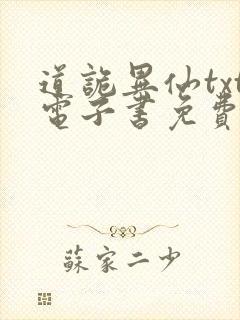 道詭異仙txt
電子書免費
蘇家二少